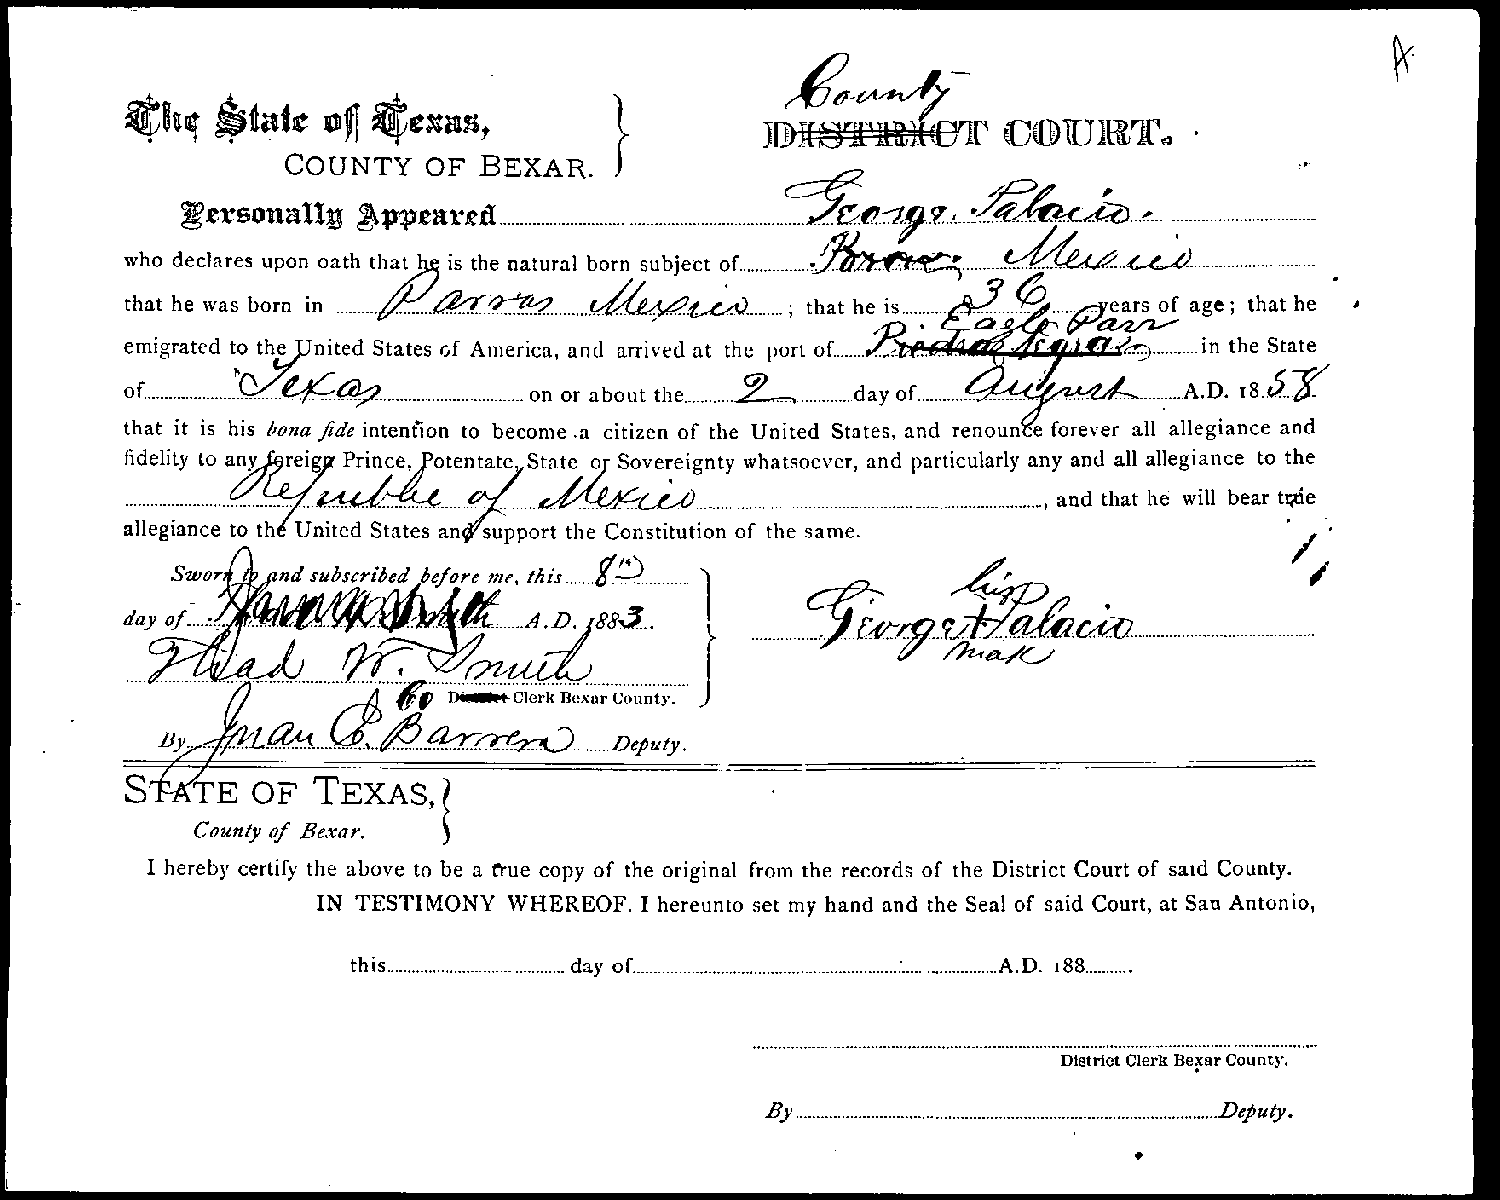 A.
County
The State of Texas, } DISTRICT COURT.
COUNTY OF BEXAR.
Personally Appeared George Palacio.
who declares upon oath that he is the natural born subject of Mexico
that he was born in Parras Mexico ; that he is 36 years of age; that he
Eagle Pass
emigrated to the United States of America, and arrived at the port of Piedras Negras in the State
of Texas on or about the 2 day of August A.D. 1858
that it is his bona fide intention to become a citizen of the United States, and renounce forever all allegiance and
fidelity to any foreign Prince, Potentate, State or Sovereignty whatsoever, and particularly any and all allegiance to the
Republic of Mexico , and that he will bear true
allegiance to the United States and support the Constitution of the same.
Sworn to and subscribed before me, this 8th
day of A.D. 1883.
his
George + Palacio
mak
Thad W. Smith
Co District Clerk Bexar County.
By Juan E. Barrera Deputy.
STATE OF TEXAS, }
County of Bexar.
I hereby certify the above to be a true copy of the original from the records of the District Court of said County.
IN TESTIMONY WHEREOF, I hereunto set my hand and the Seal of said Court, at San Antonio,
this day of A.D. 188
District Clerk Bexar County.
By Deputy.